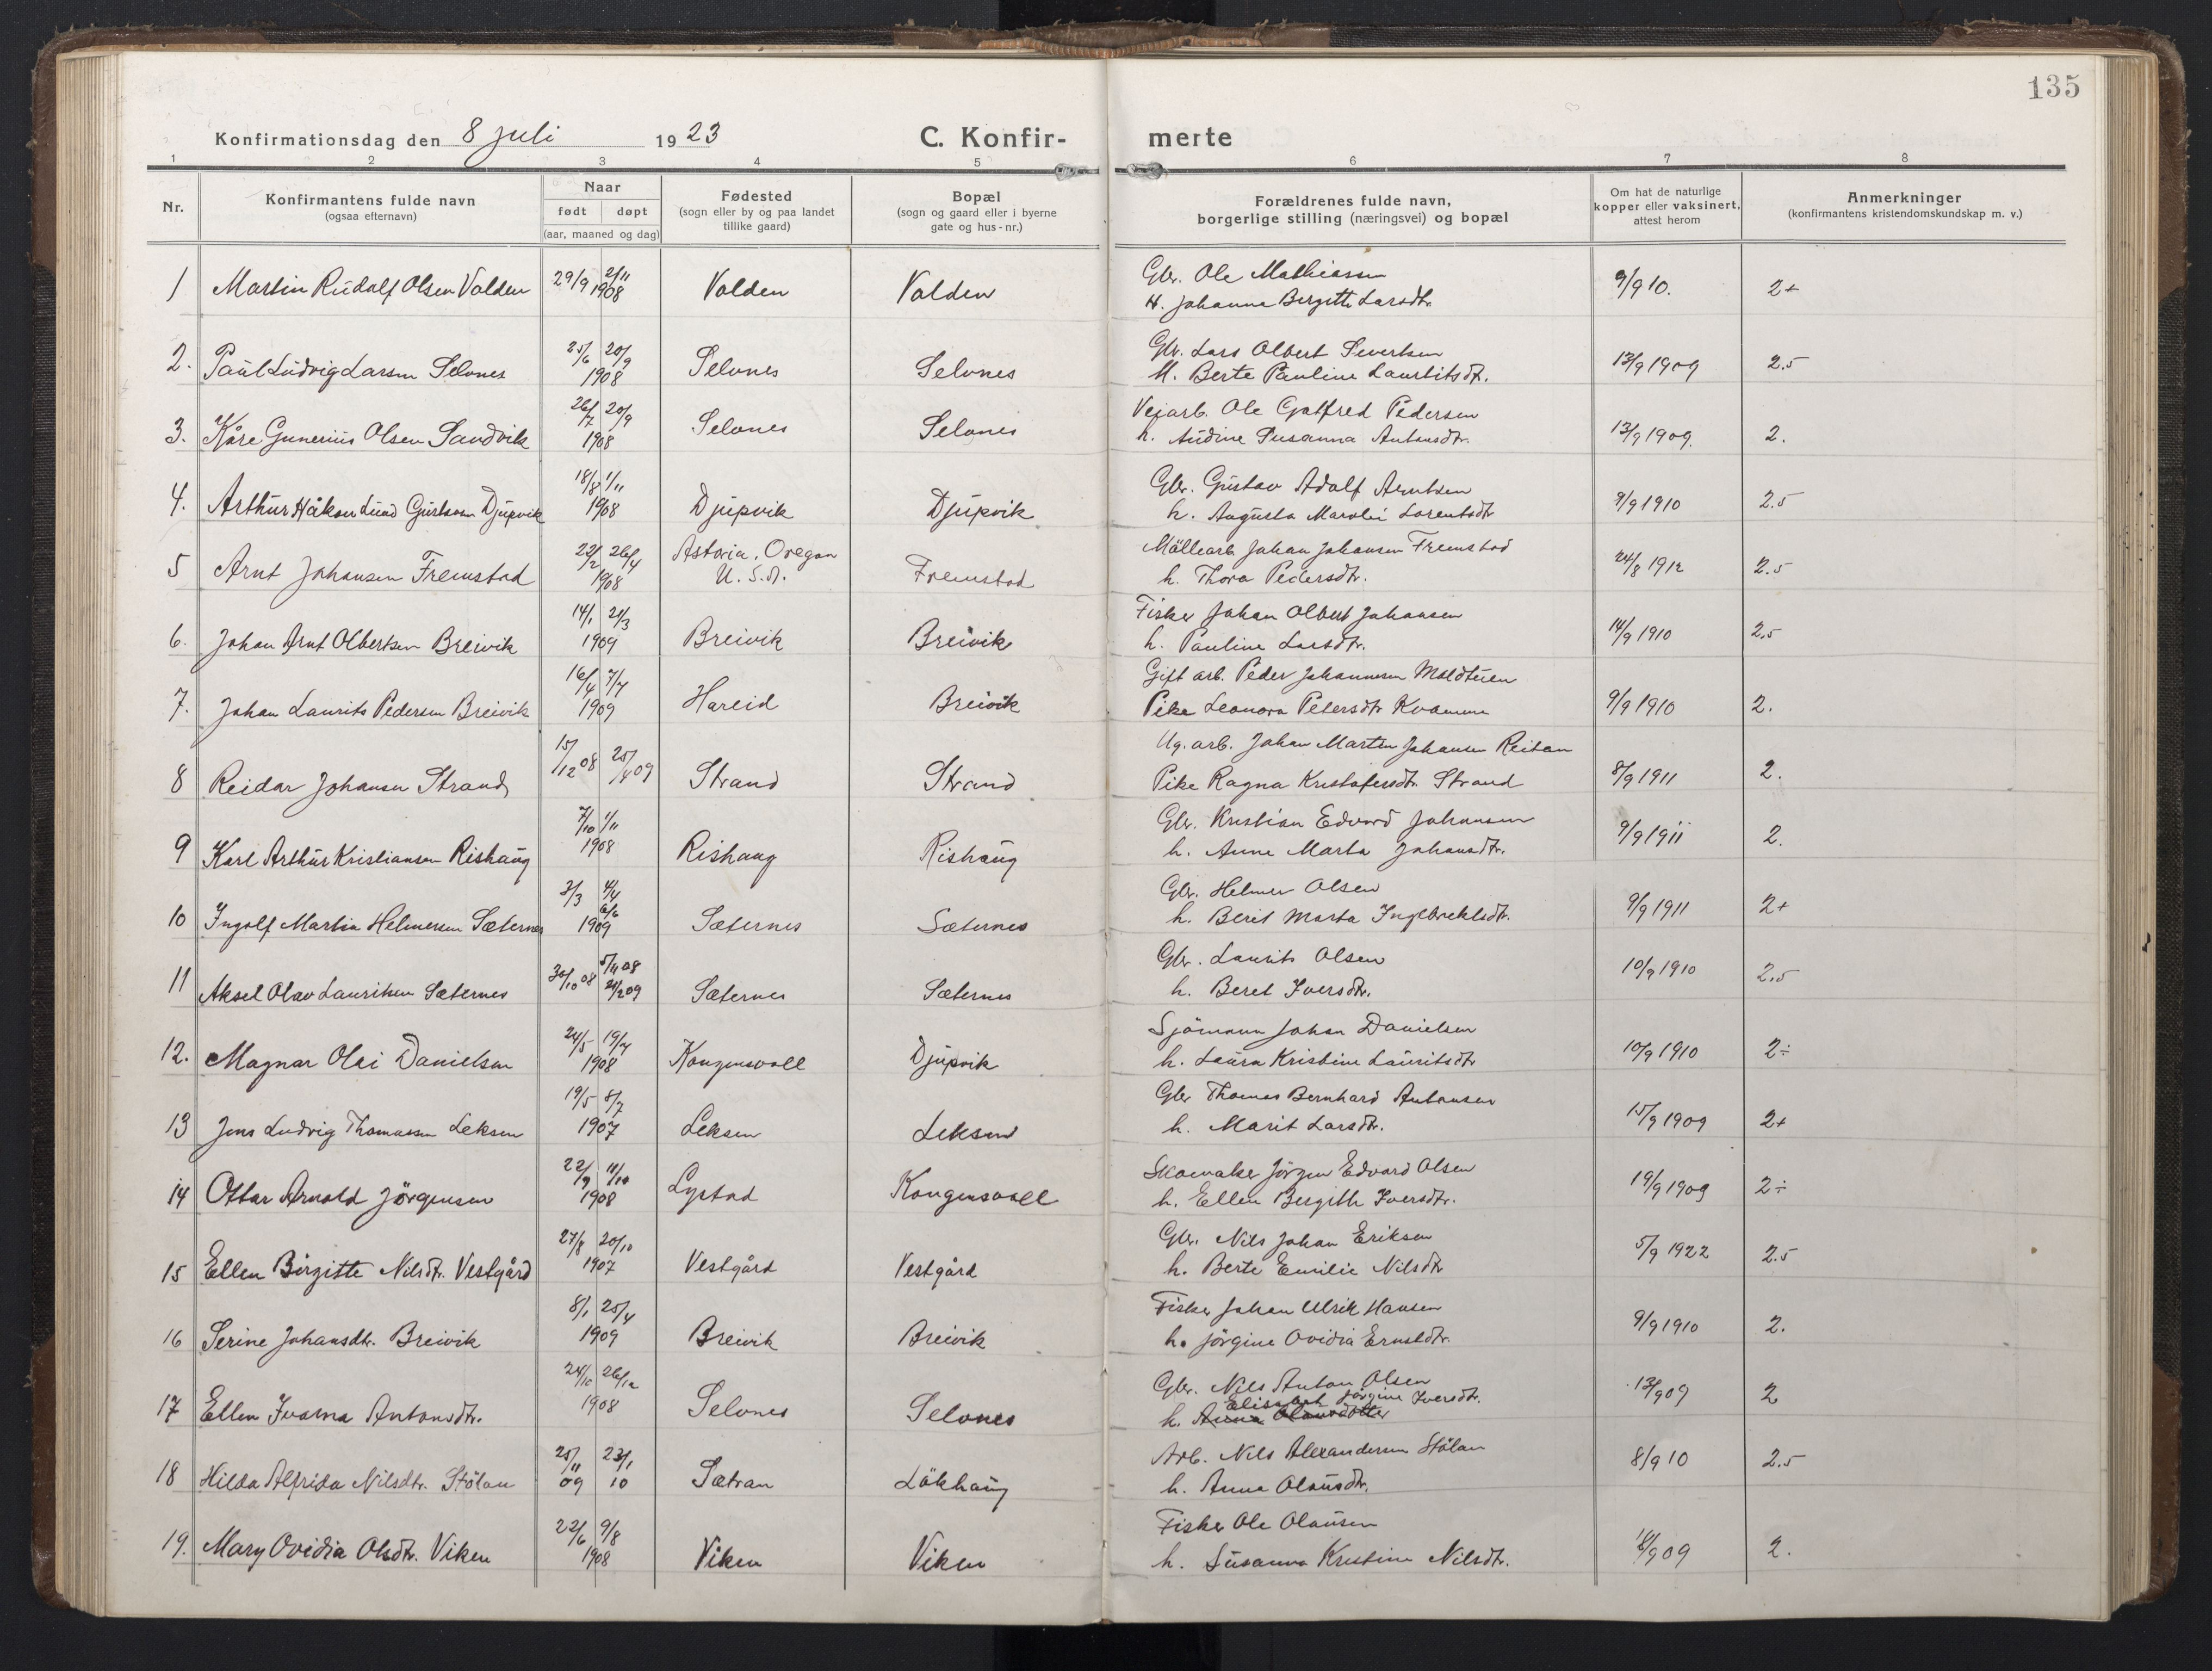 135
Konfirmationsdag den 8 juli 1923 C. Konfir- merte
1 2 3 4 5 6 7 8
Nr. Konfirmantens fulde navn (ogsaa efternavn) Naar født døpt (aar, maaned og dag) Fødested (sogn eller by og paa landet tillike gaard) Bopæl (sogn og gaard eller i byerne gate og hus-nr.) Forældrenes fulde navn, borgerlige stilling (næringsvei) og bopæl Om hat de naturlige kopper eller vaksinert, attest herom Anmerkninger (konfirmantens kristendomskundskap m. v.)
1 Martin Rudolf Olsen Valden 29/9 2/11 1908 Valden Valden Gbr. Ole Mathiassen
H. Johanna Bergitte Larsdtr. 9/9 10. 2+
2. Paul Ludvig Larsen Selvnes 25/6 20/9 1908 Selvnes Selvnes Gbr. Lars Olbert Sivertsen
H. Berte Pauline Lauritsdt. 13/9 1909 2.5
3. Kåre Gunerius Olsen Sandvik 26/7 20/9 1908 Selvnes Selvnes Veiarb. Ole Gotfred Pedersen
h. Audine Susanna Antonsdtr. 13/9 1909. 2.
4. Arthur Håkon Lund Gustavsen Djupvik 18/8 1/11 1908 Djupvik Djupvik Gbr. Gustav Adolf Arntsen
h. Augusta Lorentsdtr 9/9 1910 2.5
5 Arnt Johansen Fremstad 22/2 26/4 1908 Astoria, Oregon U.S.A. Fremstad Möllearb. Johan Johansen Fremstad
h. Thora Pedersdtr. 24/8 1912 2.5
6. Johan Arnt Olbertsen Breivik 14/1 21/3 1909 Breivik Breivik Fisker Johan Olbert Johansen
h. Pauline Larsdtr. 14/9 1910 2.5
7. Johan Laurits Pedersen Breivik 16/4 7/7 1909 Hareid Breivik Gift arb. Peder Johannesen Moldtuen
Pike Leonora Petersdtr Kvamme 9/9 1910 2.
8 Reidar Johansen Strand 15/12 08 25/4 09 Strand Strand Ug. arb. Johan Martin Johansen Reitan
Pike Ragna Kristofersdtr. Strand 8/9 1911 2.
9 Karl Arthur Kristiansen Rishaug 7/10 1/11 1908 Rishaug Rishaug Gbr. Kristian Edvard Johansen
h. Anne Marta Johansdtr. 9/9 1911 2.
10 Ingolf Martin Helmersen Sæternes 3/3 4/4 6/6 1909 Sæternes Sæternes Gbr. Helmer Olsen
h. Berit Marta Ingebrektsdtr. 9/9 1911 2+
11 Aksel Olav Lauritsen Sæternes 30/10 08 5/11 08 21/2 09 Sæternes Sæternes Gbr. Laurits Olsen
h. Beret Iversdtr. 10/9 1910 2.5
12. Magnar Olai Danielsen 24/5 19/7 1908 Kongensvoll Djupvik Sjömann Johan Danielsen
h. Laura Kristine Lauritsdtr 10/9 1910 2÷
13 Jens Ludvig Thomassen Leksen 19/5 8/7 1907 Leksen Leksen Gbr Thomas Bernhard Antonsen
h. Marit Larsdtr. 15/9 1909 2+
14 Ottar Arnold Jörgensen 22/9 11/10 1908 Lystad Kongensvoll Skomaker Jörgen Edvard Olsen
h. Ellen Bergitte Iversdtr. 19/9 1909 2÷
15 Ellen Birgitte Nilsdtr. Vestgård 27/8 20/10 1907 Vestgård Vestgård Gbr. Nils Johan Eriksen
h. Berte Emilie Nilsdtr 5/9 1922 2.5
16 Serine Johansdtr. Breivik 8/1 25/4 1909 Breivik Breivik Fisker Johan Ulrik Hansen
h. Jörgine Ovidia Ernstdtr. 9/9 1910 2.
17 Ellen Ivarna Antonsdtr. 24/10 26/12 1908 Selvnes Selvnes Gbr. Nils Anton Olsen
Elisabet Jörgine Iversdtr.
h. Anna Olausdotter 13/9 09 2
18 Hilda Alfrida Nilsdtr. Stölan 25/11 09 23/1 10 Sætran Lökhaug Arb. Nils Alexandersen Stölan
h. Anna Olausdtr. 8/9 10 2.5
19. Mary Ovidia Olsdtr. Viken 22/6 9/8 1908 Viken Viken Fisker Ole Olausen
h. Susanna Kristine Nilsdtr. 16/9 09 2.